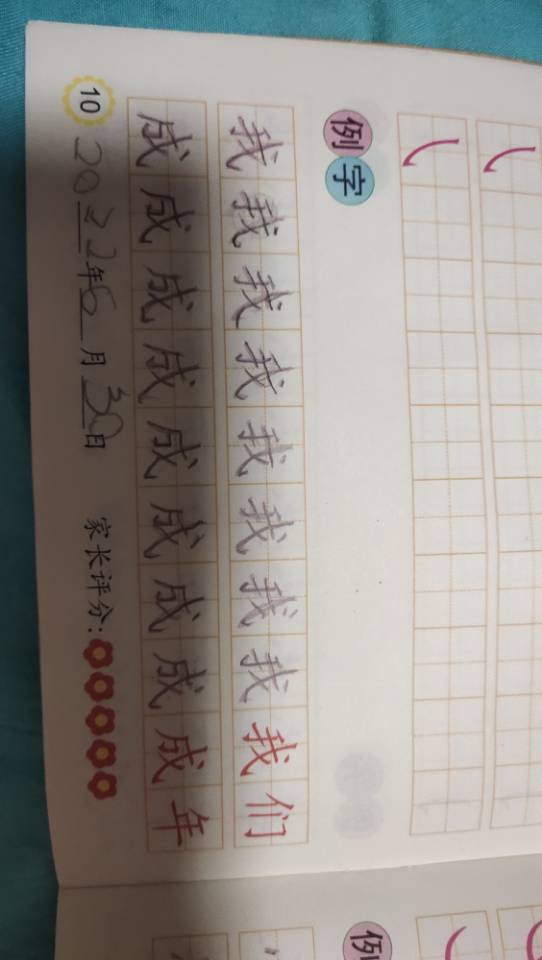 例字
我我我我我我我我我们
成成成成成成成成成年
10 2022年6月30日 家长评分:
例